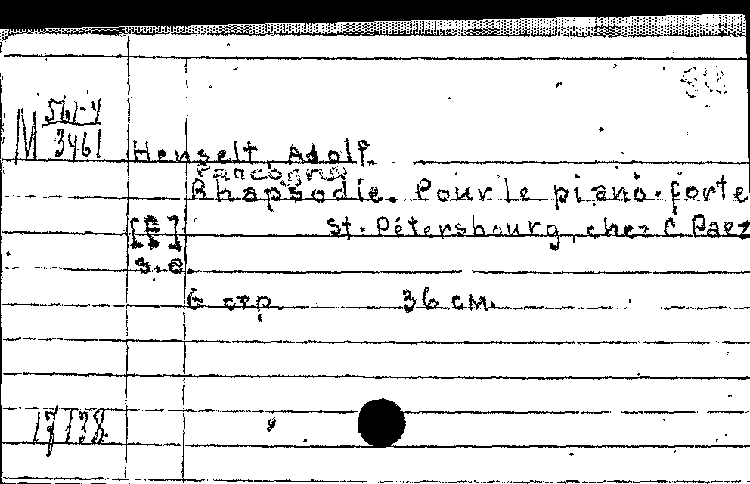 M 561-4
3461
Henselt, Adolf.
Rhapsodie. Pour le piano-forte
[F] St. Pétersbourg, chez C. Paez
s.e.
6 стр. 36 см.
17138